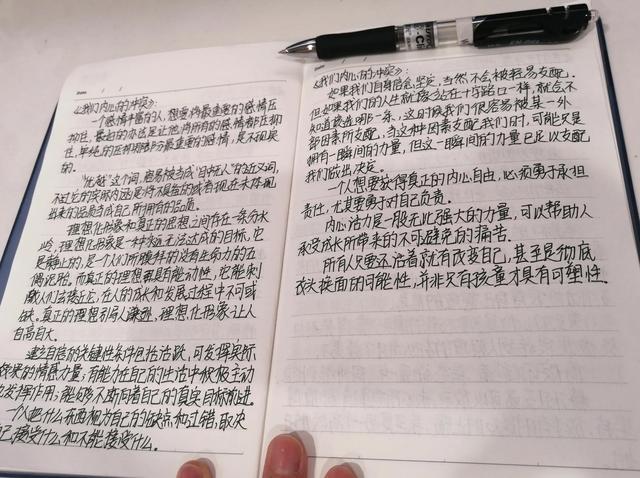 《我们内心的冲突》:
一个感情丰富的人,想要将最重要的感情压
抑住,最迫的办法是让他将所有的感情都压抑
住,单纯的压抑那部分最重要的感情,是不现实
的。
"优越"这个词,容易被当成"目中无人"的近义词,
不过它的实际内涵是将不具备的或者现在未体现
出来的品质当成自己所拥有的品质。
理想化形象和真正的思想之间存在一条分水
岭,理想化形象是一种永远无法达成的目标,它
是静止的,是个人们所膜拜的没有生命力的在
偶泥胎。而真正的理想都具有能动性,它能刺
激人们去接近它,在人的成长和发展过程中不可或
缺。真正的理想引导人谦逊,理想化形象让人
自高自大。
建立自信的关键性条件包括活跃,可发挥实际
效果的情感力量,有能力在自己的生活中积极主动
地发挥作用,能够不断向着自己的真实目标前进。
一个人把什么东西视为自己的缺点和过错,取决
自己接受什么和不能接受什么。
《我们内心的冲突》:
如果我们自身信念坚定,当然不会被轻易支配。
但如果我们的人生就像站在十字路口一样,就会不
知道该选哪一条,这时候我们很容易被某一外
部因素所支配,当这种因素支配我们时,可能只是
拥有一瞬间的力量,但这一瞬间的力量已足以支配
我们做出决定。
一个人想要获得真正的内心自由,必须勇于承担
责任,尤其要勇于对自己负责。
内心活力是一股无比强大的力量,可以帮助人
承受成长所带来的不可避免的痛苦。
所有人只要还活着就有改变自己,甚至是彻底
改头换面的可能性,并非只有孩童才具有可塑性。